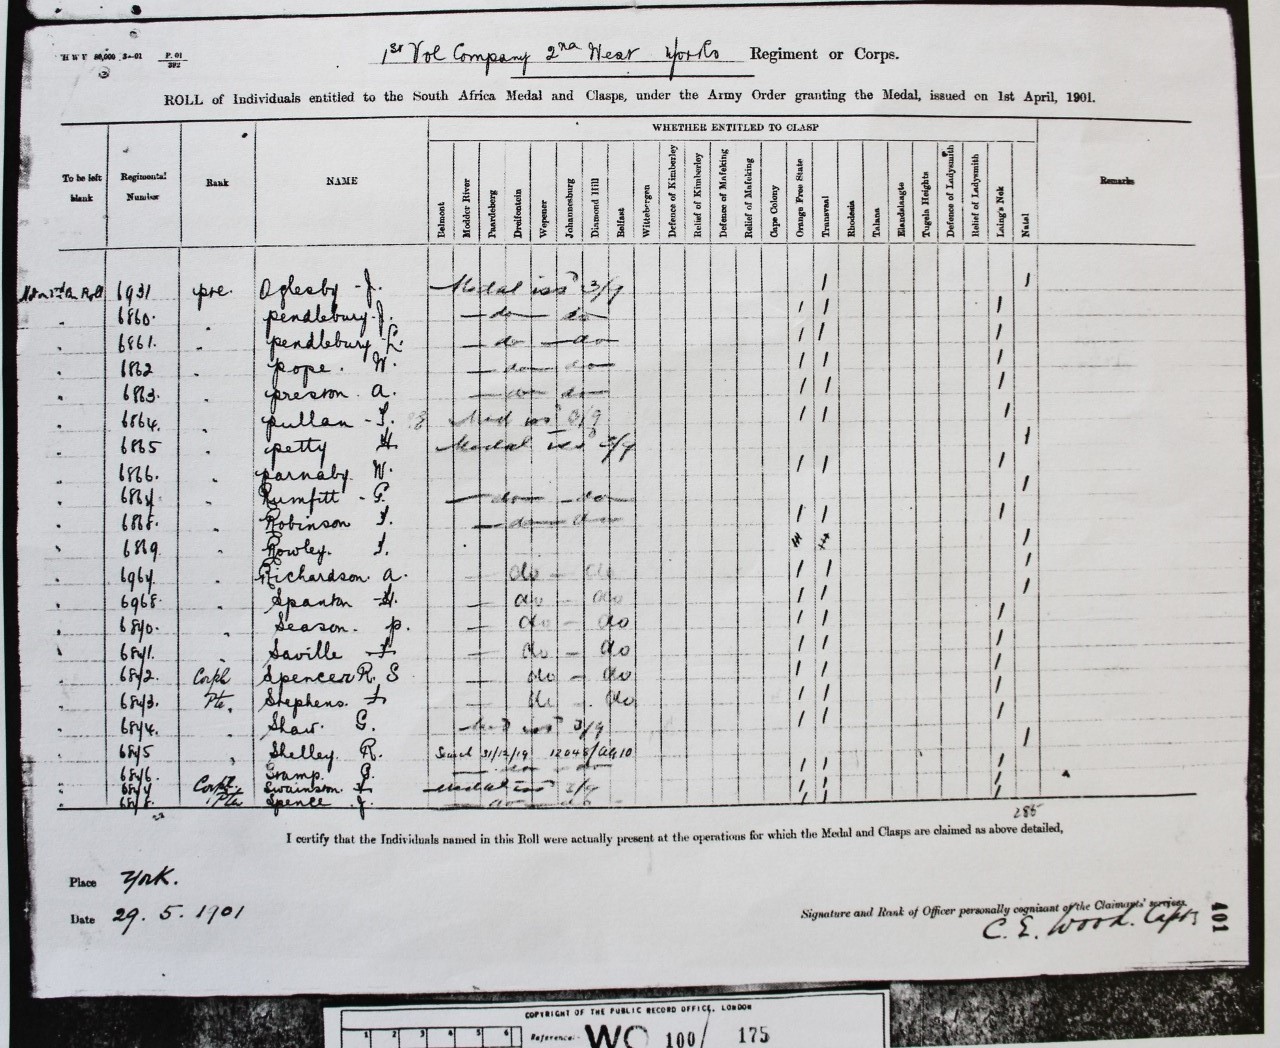 HWV 80,000 3-01 P. 01/392
1st Vol Company 2nd West Yorks Regiment or Corps.
ROLL of Individuals entitled to the South Africa Medal and Clasps, under the Army Order granting the Medal, issued on 1st April, 1901.
WHETHER ENTITLED TO CLASP
To be left blank Regimental Number Rank NAME Belmont Modder River Paardeberg Dreifontein Wepener Johannesburg Diamond Hill Belfast Wittebergen Defence of Kimberley Relief of Kimberley Defence of Mafeking Relief of Mafeking Cape Colony Orange Free State Transvaal Rhodesia Talana Elandslaagte Tugela Heights Defence of Ladysmith Relief of Ladysmith Laing's Nek Natal Remarks
Roll 6931 pte. Oglesby - J. Medal issd 3/9 / /
" 6860 " pendlebury - J. — do — do — / / /
" 6861 " pendlebury L. — do — do — / / /
" 6862 " pope. W. — do — do — / / /
" 6863 " preston. a. — do — do — / / /
" 6864 " pullan - / / /
" 6865 " petty H. Medal issd 3/9 /
" 6866 " parnaby. W. / / /
" " Rumfitt - G. — do — do — /
" 6868 " Robinson — do — do — / / /
" 6869 " Rowley. /
" " Richardson. a. do — do / / /
" 6968 " Spanton H. — do — do / / /
" " Season. p. — do - do / / /
" " Saville — do - do / / /
" Corpl Spencer R. S — do - do / / /
" Pte Stephens. — do . do / / /
" " Shaw. G. 3/9 / / /
" " Shelley. R. 31/12/19 /
" " G. — do — do — / / /
" Corpl. Swainson. Medal issd 3/9 / / /
" Pte Spence J. — do — do — / / /
286
I certify that the Individuals named in this Roll were actually present at the operations for which the Medal and Clasps are claimed as above detailed,
Place York.
Date 29. 5. 1901
Signature and Rank of Officer personally cognizant of the Claimants' services.
C. E. Wood. Capt.
401
COPYRIGHT OF THE PUBLIC RECORD OFFICE, LONDON
1 2 3 4 5 6 Reference:- WO 100/175